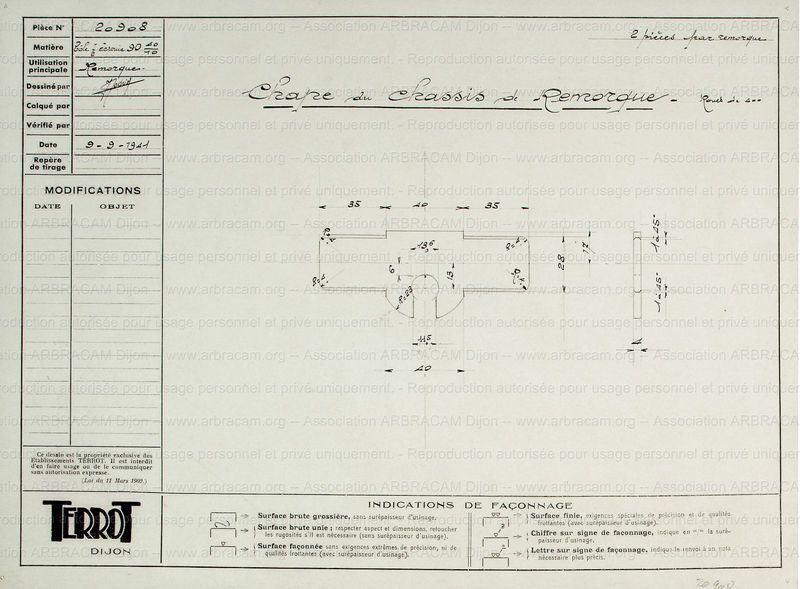 Pièce N° 20908
Matière Tôle ½ écrouie 90 40/10
Utilisation principale Remorque.
Dessiné par
Calqué par
Vérifié par
Date 9-9-1941
Repère de tirage
MODIFICATIONS
DATE OBJET
2 pièces par remorque
Chape du Chassis de Remorque - Roues de 400
35 40 35
13,5
6
13
17
28
1 à 25
1 à 25
11,5
40
4
Ce dessin est la propriété exclusive des
Etablissements TERROT. Il est interdit
d'en faire usage ou de le communiquer
sans autorisation expresse.
(Loi du 11 Mars 1902.)
TERROT
DIJON
INDICATIONS DE FAÇONNAGE
Surface brute grossière, sans surépaisseur d'usinage.
Surface brute unie ; respecter aspect et dimensions, retoucher
les rugosités s'il est nécessaire (sans surépaisseur d'usinage).
Surface façonnée sans exigences extrêmes de précision, ni de
qualités frottantes (avec surépaisseur d'usinage).
Surface finie, exigences spéciales de précision et de qualités
frottantes (avec surépaisseur d'usinage).
Chiffre sur signe de façonnage, indique en "/" la surépaisseur d'usinage.
Lettre sur signe de façonnage, indique le renvoi à un nota
nécessaire plus précis.
www.arbracam.org -- Association ARBRACAM Dijon -- www.arbracam.org -- Association ARBRACAM Dijon
Reproduction autorisée pour usage personnel et privé uniquement. - Reproduction autorisée pour usage personnel et privé uniquement.